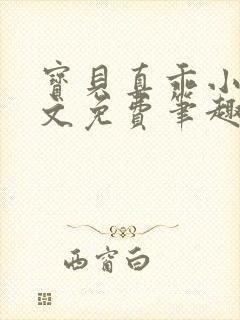 寶貝真乖小
文免費筆趣
西窗白